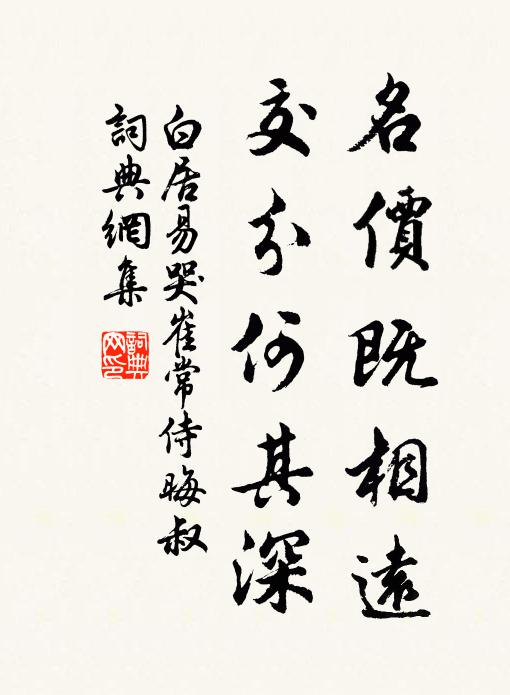 名價既相遠
交分何其深
白居易哭崔常侍晦叔
詞典網集
詞典
网印